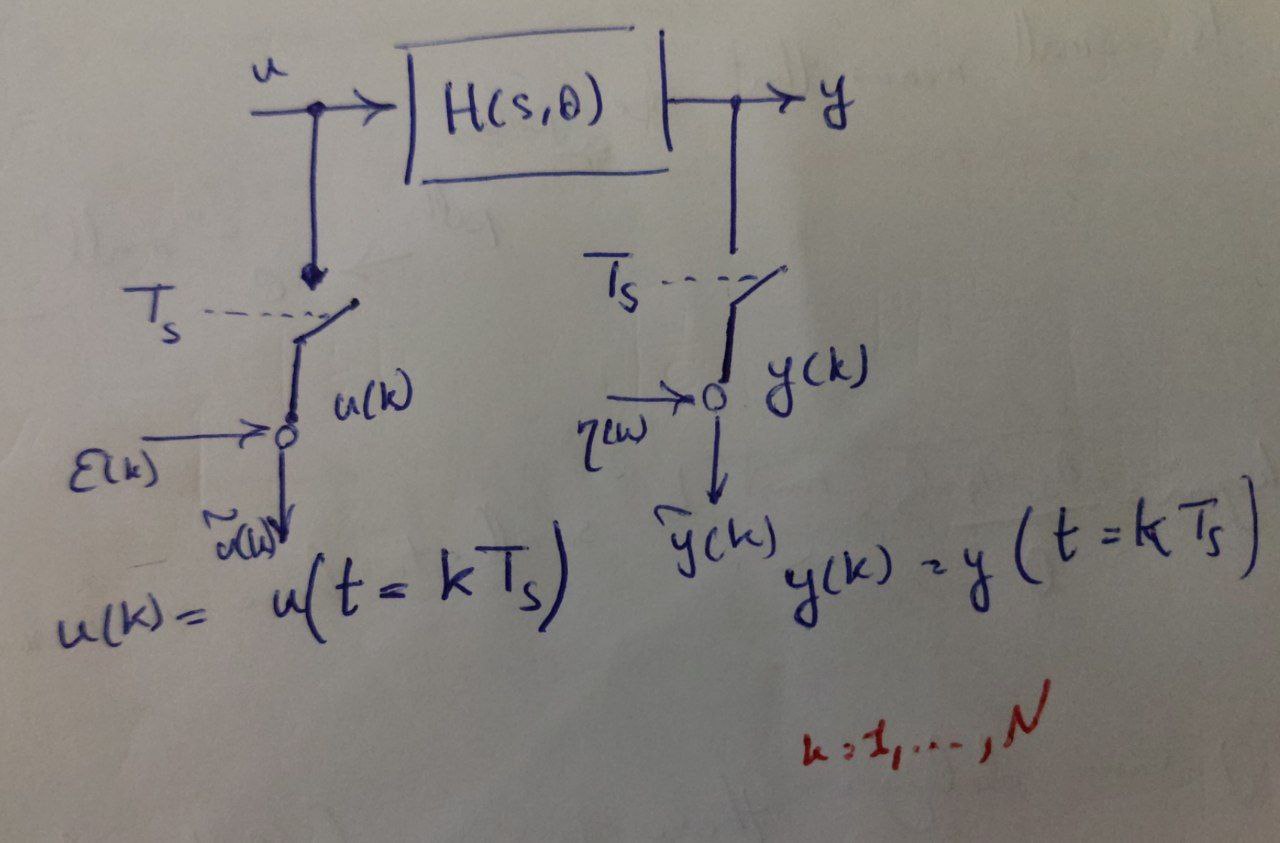 u
H(s,θ)
y
Ts
Ts
u(k)
y(k)
ε(k)
η(k)
ũ(k)
ỹ(k)
u(k) = u(t = kTs)
y(k) = y(t = kTs)
k = 1, ..., N